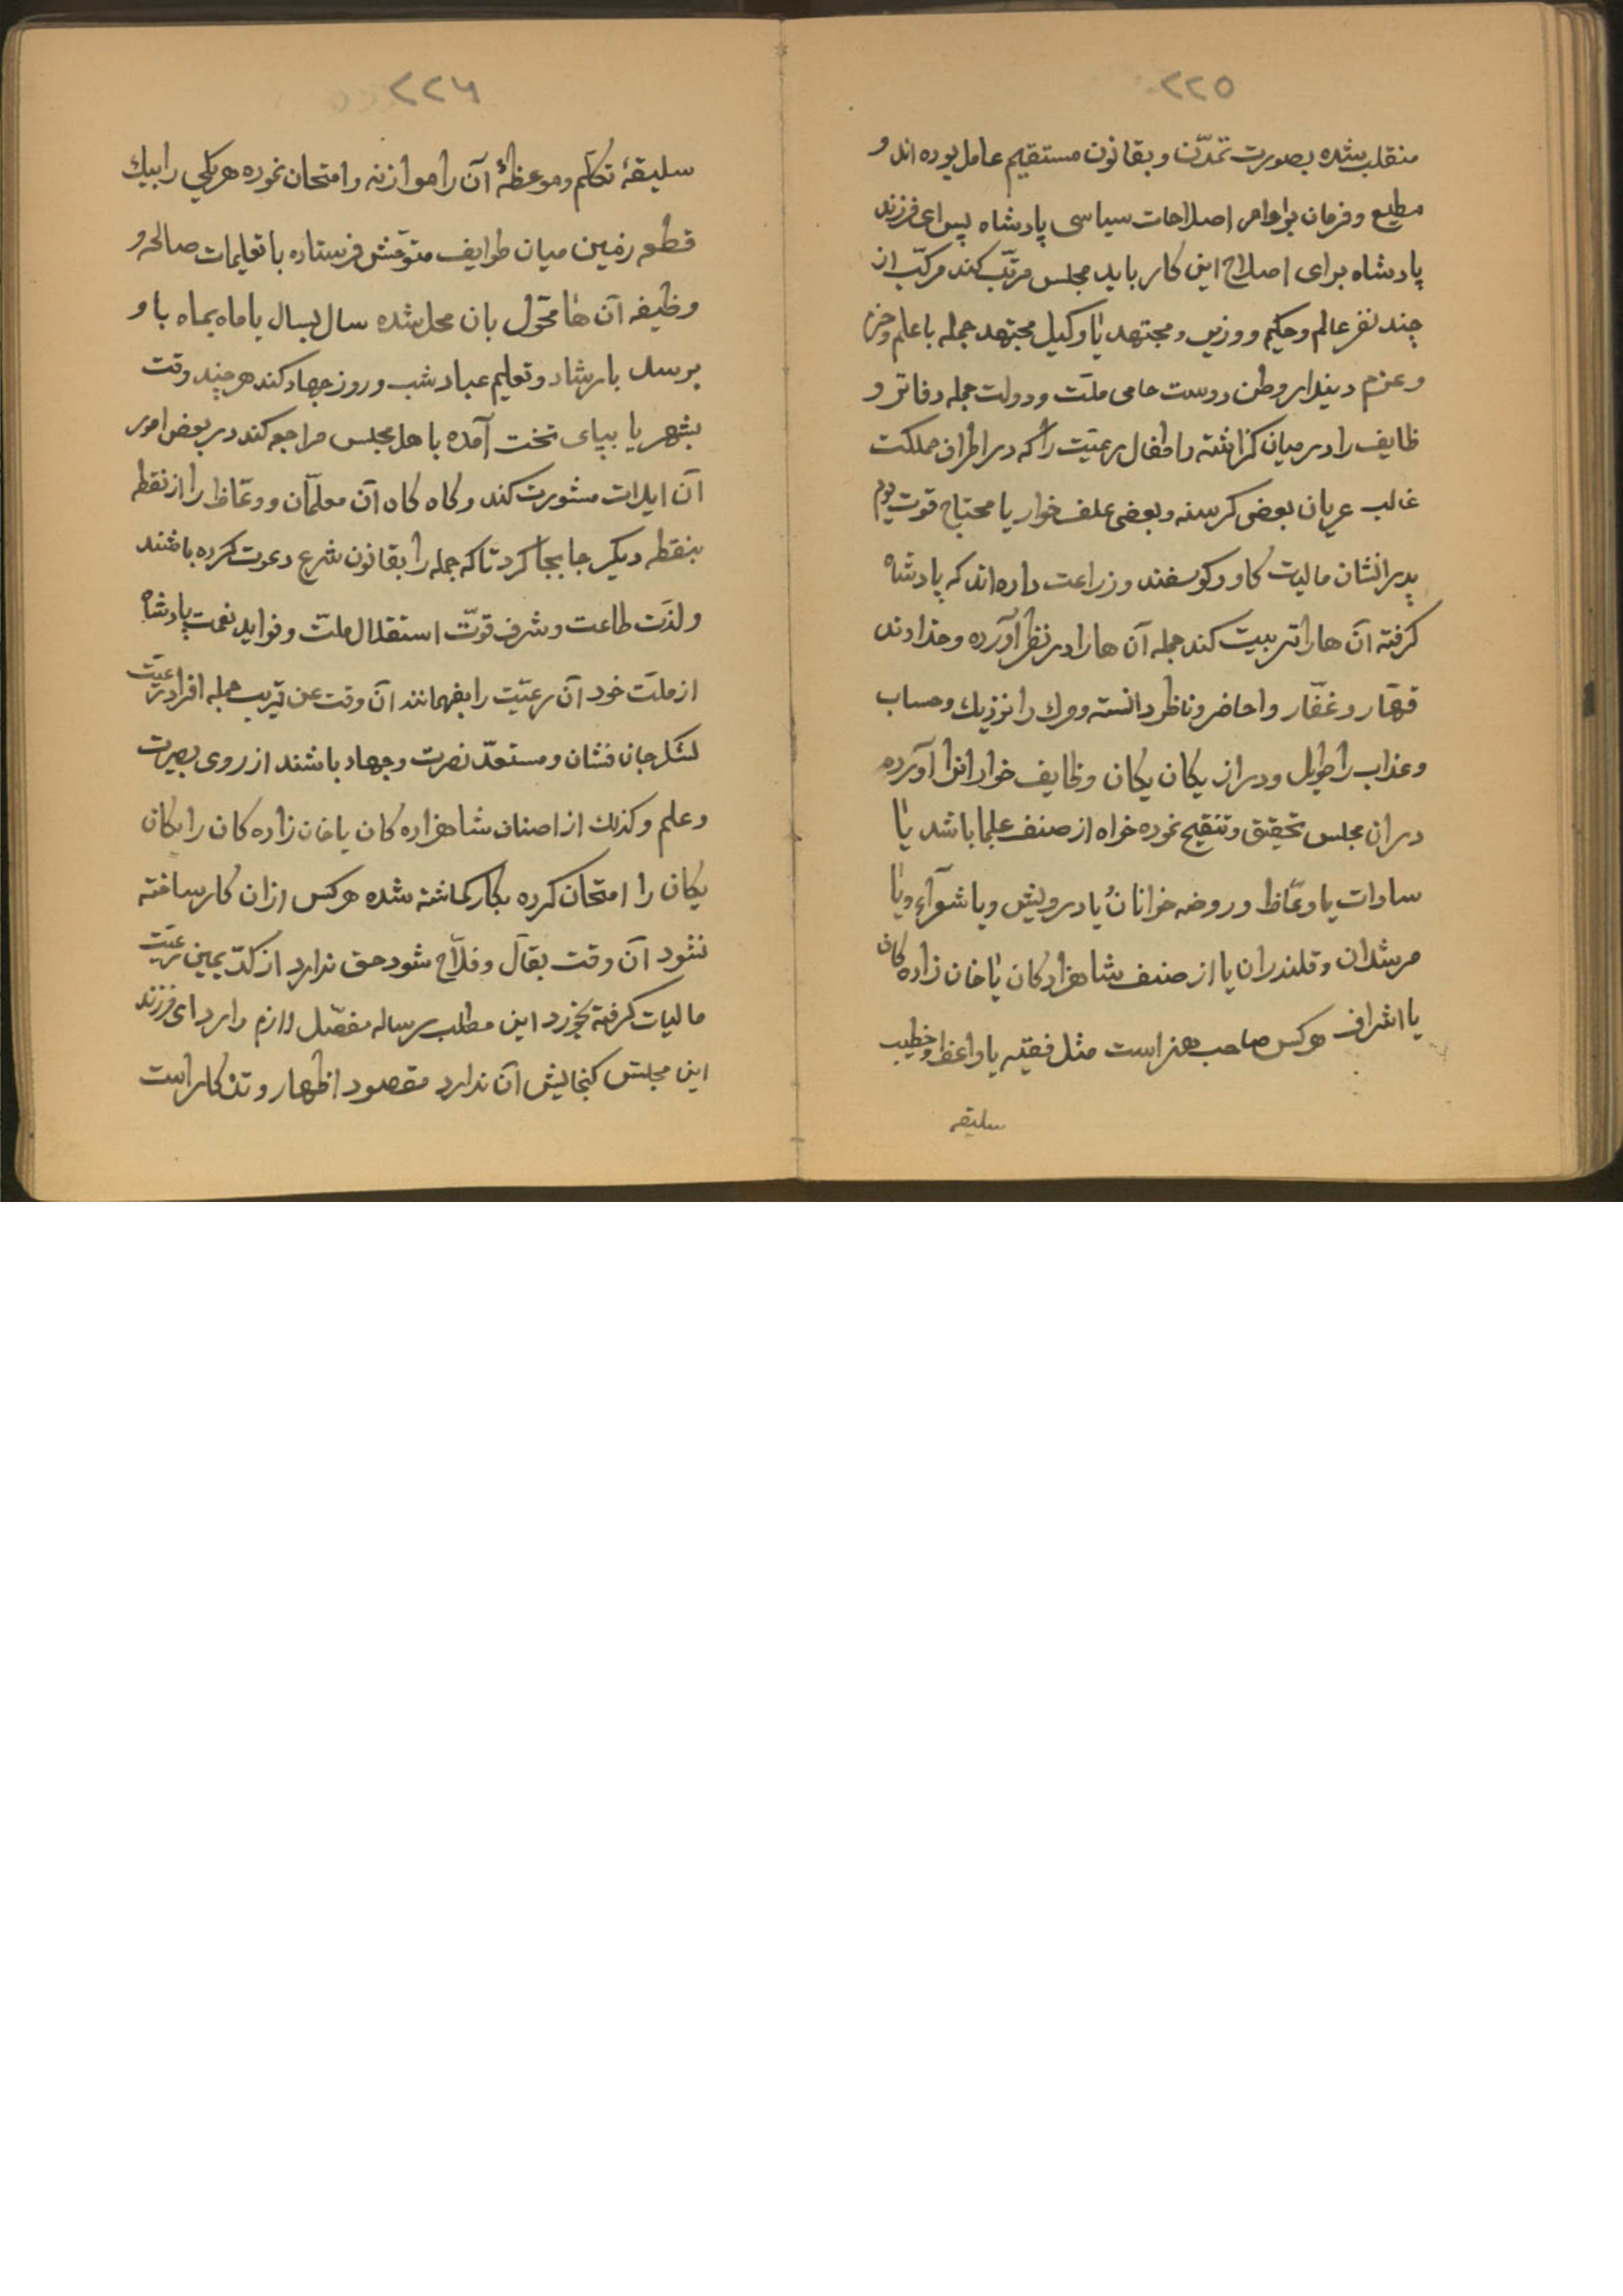 ٢٢٥
منقلب شده بصورت تمدّن و بقانون مستقیم عامل بوده اند و
مطیع و فرمان بر اوامر اصلاحات سیاسی پادشاه پس ای فرزند
پادشاه برای اصلاح این کار باید مجلس مرتّب کند مرکّب از
چند نفر عالم و حکیم و وزیر و مجتهد یا وکیل مجتهد جمله با علم و حزم
و عزم دیندار وطن دوست حامی ملّت و دولت جمله دفاتر و
ظایف را در میان گذاشته و اطفال رعیّت را که در اطراف مملکت
غالب عریان بعضی کرسنه و بعضی علف خوار یا محتاج قوت یوم
پدرانشان مالیت کاو و کوسفند و زراعت داده اند که پادشاه
کرفته آن ها را تربیت کند جمله آن ها را در نظر آورده و خداوند
قهّار و غفّار و احاضر و ناظر دانسته و مرك را نزدیك و حساب
و عذاب را طویل و دراز یکان یکان وظایف خواران را آورده
در ان مجلس تحقیق و تنقیح نموده خواه از صنف علما باشد یا
سادات یا وعّاظ و روضه خوانان یا درویش و یا شعرآء و یا
مرشدان و قلندران یا از صنف شاهزادکان یا خان زاده کان
یا اشراف هرکس صاحب هنر است مثل فقیه یا واعظ و خطیب
سلیقه
٢٢٦
سلیقهٔ تکلّم و موعظهٔ آن را موازنه و امتحان نموده هر یکی را بیك
قطعه زمین میان طوایف متوحّش فرستاده با تعلیمات صالحه و
وظیفه آن ها محوّل بان محل شده سال بسال یا ماه بماه باو
برسد بارشاد و تعلیم عباد شب و روز جهاد کند هر چند وقت
بشهر یا بپای تخت آمده باهل مجلس مراجعه کند در بعض امور
آن ایلات مشورت کند و کاه کاه آن معلمّان و وعّاظ را از نقطه
بنقطه دیکر جا بجا کرد تا که جمله را بقانون شرع دعوت کرده باشند
و لذّت طاعت و شرف قوّت استقلال ملّت و فواید نعمت پادشاه
از ملّت خود آن رعیّت را بفهمانند آن وقت عن قریب جمله افراد رعیّت
لشکر جان فشان و مستعدّ نصرت و جهاد باشند از روی بصیرت
و علم و کذلك از اصناف شاهزاده کان یا خان زاده کان را یکان
یکان را امتحان کرده بکار کماشته شده هرکس از ان کار ساخته
نشود آن وقت بقال و فلّاح شود حق ندارد از کدّ یمین رعیّت
مالیات کرفته بخورد این مطلب رساله مفصّل لازم دارد ای فرزند
این مجلس کنجایش آن ندارد مقصود اظهار و تذکار است